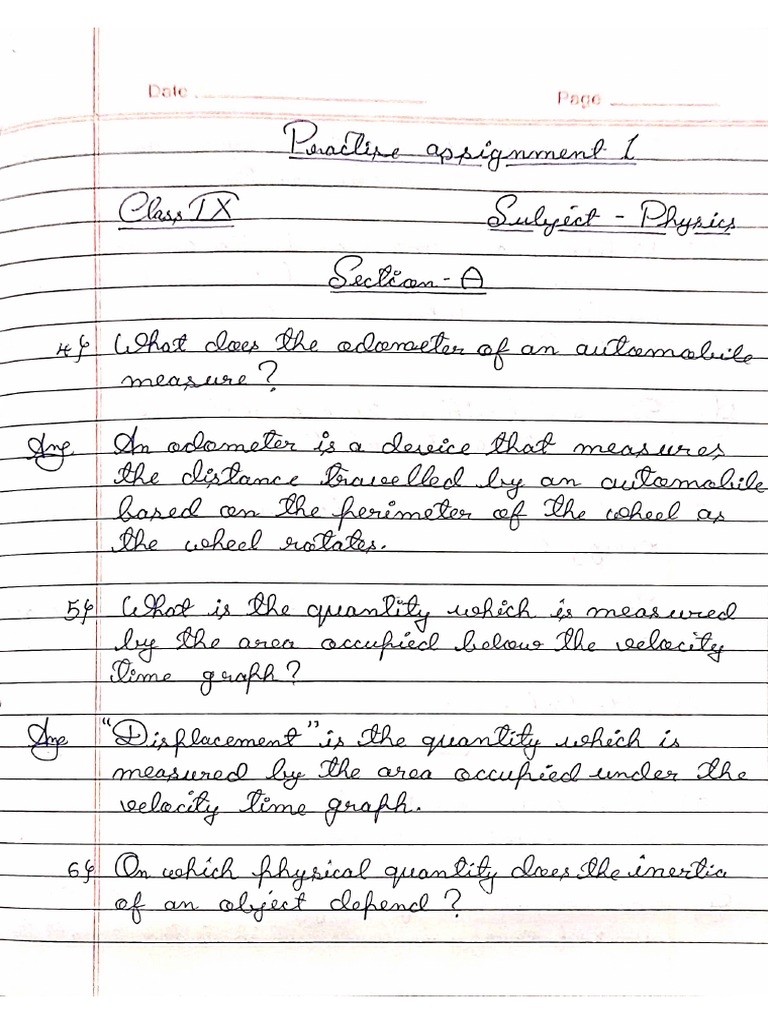 Date
Page
Practise assignment 1
Class IX Subject - Physics
Section - A
4) What does the odometer of an automobile
measure?
Ans An odometer is a device that measures
the distance travelled by an automobile
based on the perimeter of the wheel as
the wheel rotates.
5) What is the quantity which is measured
by the area occupied below the velocity
time graph?
Ans "Displacement" is the quantity which is
measured by the area occupied under the
velocity time graph.
6) On which physical quantity does the inertia
of an object depend?